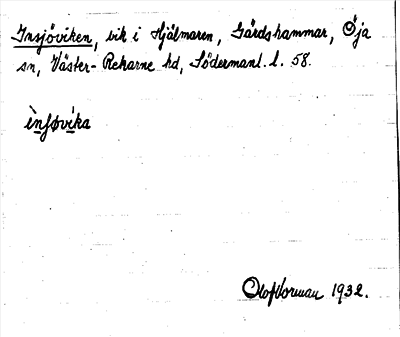 Insjöviken, vik i Hjälmaren, Gärdshammar, Öja
sn, Väster-Rekarne hd, Södermanl. l. 58.
ìnʃøvíka
Olof Norman 1932.